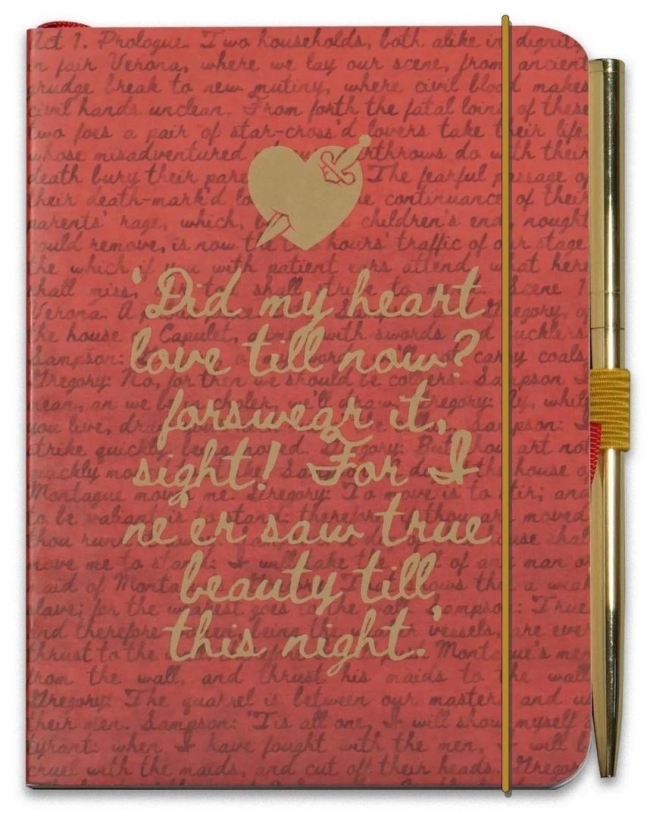 Act 1. Prologue. Two households, both alike in dignity
in fair Verona, where we lay our scene, from ancient
grudge break to new mutiny, where civil blood makes
civil hands unclean. From forth the fatal loins of these
two foes a pair of star-cross'd lovers take their life.
whose misadventured do with their
death bury their The fearful passage of
their death-mark'd continuance of their
parents' rage, which, children's end, nought
could remove, is now the hours' traffic of our stage
the which if you with patient ears attend, what here
shall miss,
'Did my heart
love till now?
forswear it,
sight! For I
ne'er saw true
beauty till
this night.'
Scene 1
Verona. A Gregory, of
the house of Capulet, with swords and bucklers
Sampson: carry coals
Gregory: No, for then we should be colliers. Sampson: I
mean, an we be in choler, we'll draw. Gregory: Ay, while
you live, draw
strike quickly being moved. Gregory: But thou art not
quickly house of
Montague move me. Gregory: To move is to stir; and
to be valiant is to stand: therefore, if thou art moved
thou shall
move me to stand: I will take the of any man or
maid of
slave; for the weakest goes to the wall. Sampson: True
and therefore women, being the weaker vessels, are ever
thrust to the Montague's men
from the wall, and thrust his maids to the wall
Gregory: The quarrel is between our masters and us
their men. Sampson: 'Tis all one, I will show myself a
tyrant: when I have fought with the men, I will be
cruel with the maids, and cut off their heads. Gregory